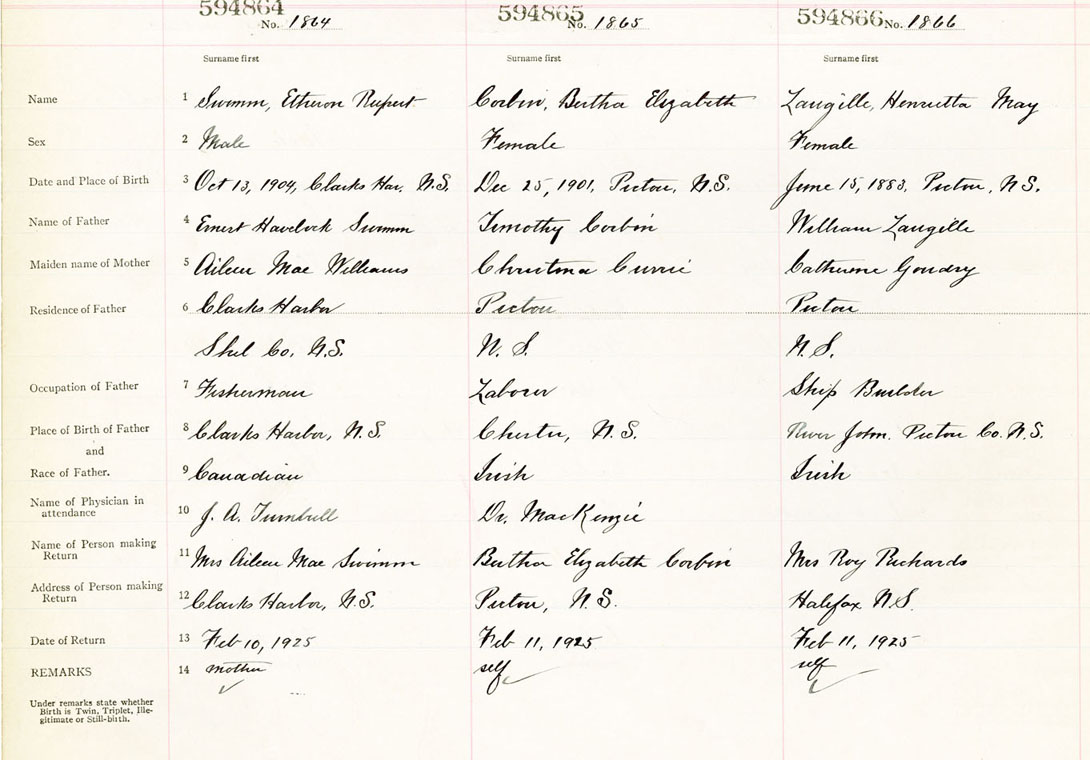 594864 594865 594866
No. 1864 No. 1865 No. 1866
Surname first Surname first Surname first
Name 1 Swimm, Etheron Rupert Corbin, Bertha Elizabeth Langille, Henrietta May
Sex 2 Male Female Female
Date and Place of Birth 3 Oct 13, 1904, Clarks Har. N.S. Dec 25, 1901, Pictou, N.S. June 15, 1883, Pictou, N.S.
Name of Father 4 Ernest Havelock Swimm Timothy Corbin William Langille
Maiden name of Mother 5 Aileen Mae Williams Christina Currie Catherine Goudry
Residence of Father 6 Clarks Harbor Pictou Pictou
Shel Co. N.S. N. S. N.S.
Occupation of Father 7 Fisherman Laborer Ship Builder
Place of Birth of Father 8 Clarks Harbor, N.S. Chester, N.S. River John. Pictou Co. N.S.
and
Race of Father. 9 Canadian Irish Irish
Name of Physician in
attendance 10 J. A. Turnbull Dr. MacKenzie
Name of Person making
Return 11 Mrs Aileen Mae Swimm Bertha Elizabeth Corbin Mrs Roy Richards
Address of Person making
Return 12 Clarks Harbor, N.S. Pictou, N.S. Halifax N.S.
Date of Return 13 Feb 10, 1925 Feb 11, 1925 Feb 11, 1925
REMARKS 14 mother self self
Under remarks state whether
Birth is Twin, Triplet, Ille-
gitimate or Still-birth.